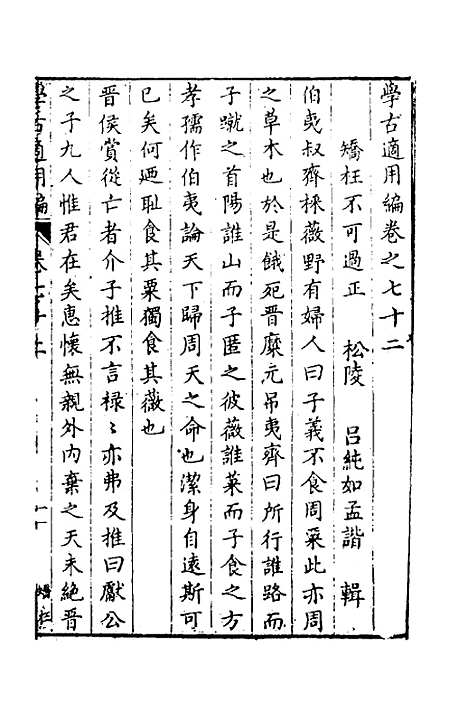 學古適用編卷之七十二
矯枉不可過正 松陵 吕純如孟諧 輯
伯夷叔齊採薇野有婦人曰子義不食周粟此亦周
之草木也於是餓死晋糜元吊夷齊曰所行誰路而
子蹴之首陽誰山而子匿之彼薇誰菜而子食之方
孝孺作伯夷論天下歸周天之命也潔身自遠斯可
已矣何迺耻食其粟獨食其薇也
晋侯賞從亡者介子推不言禄〻亦弗及推曰獻公
之子九人惟君在矣惠懷無親外内棄之天未絶晋
學古適用編 卷之七十二